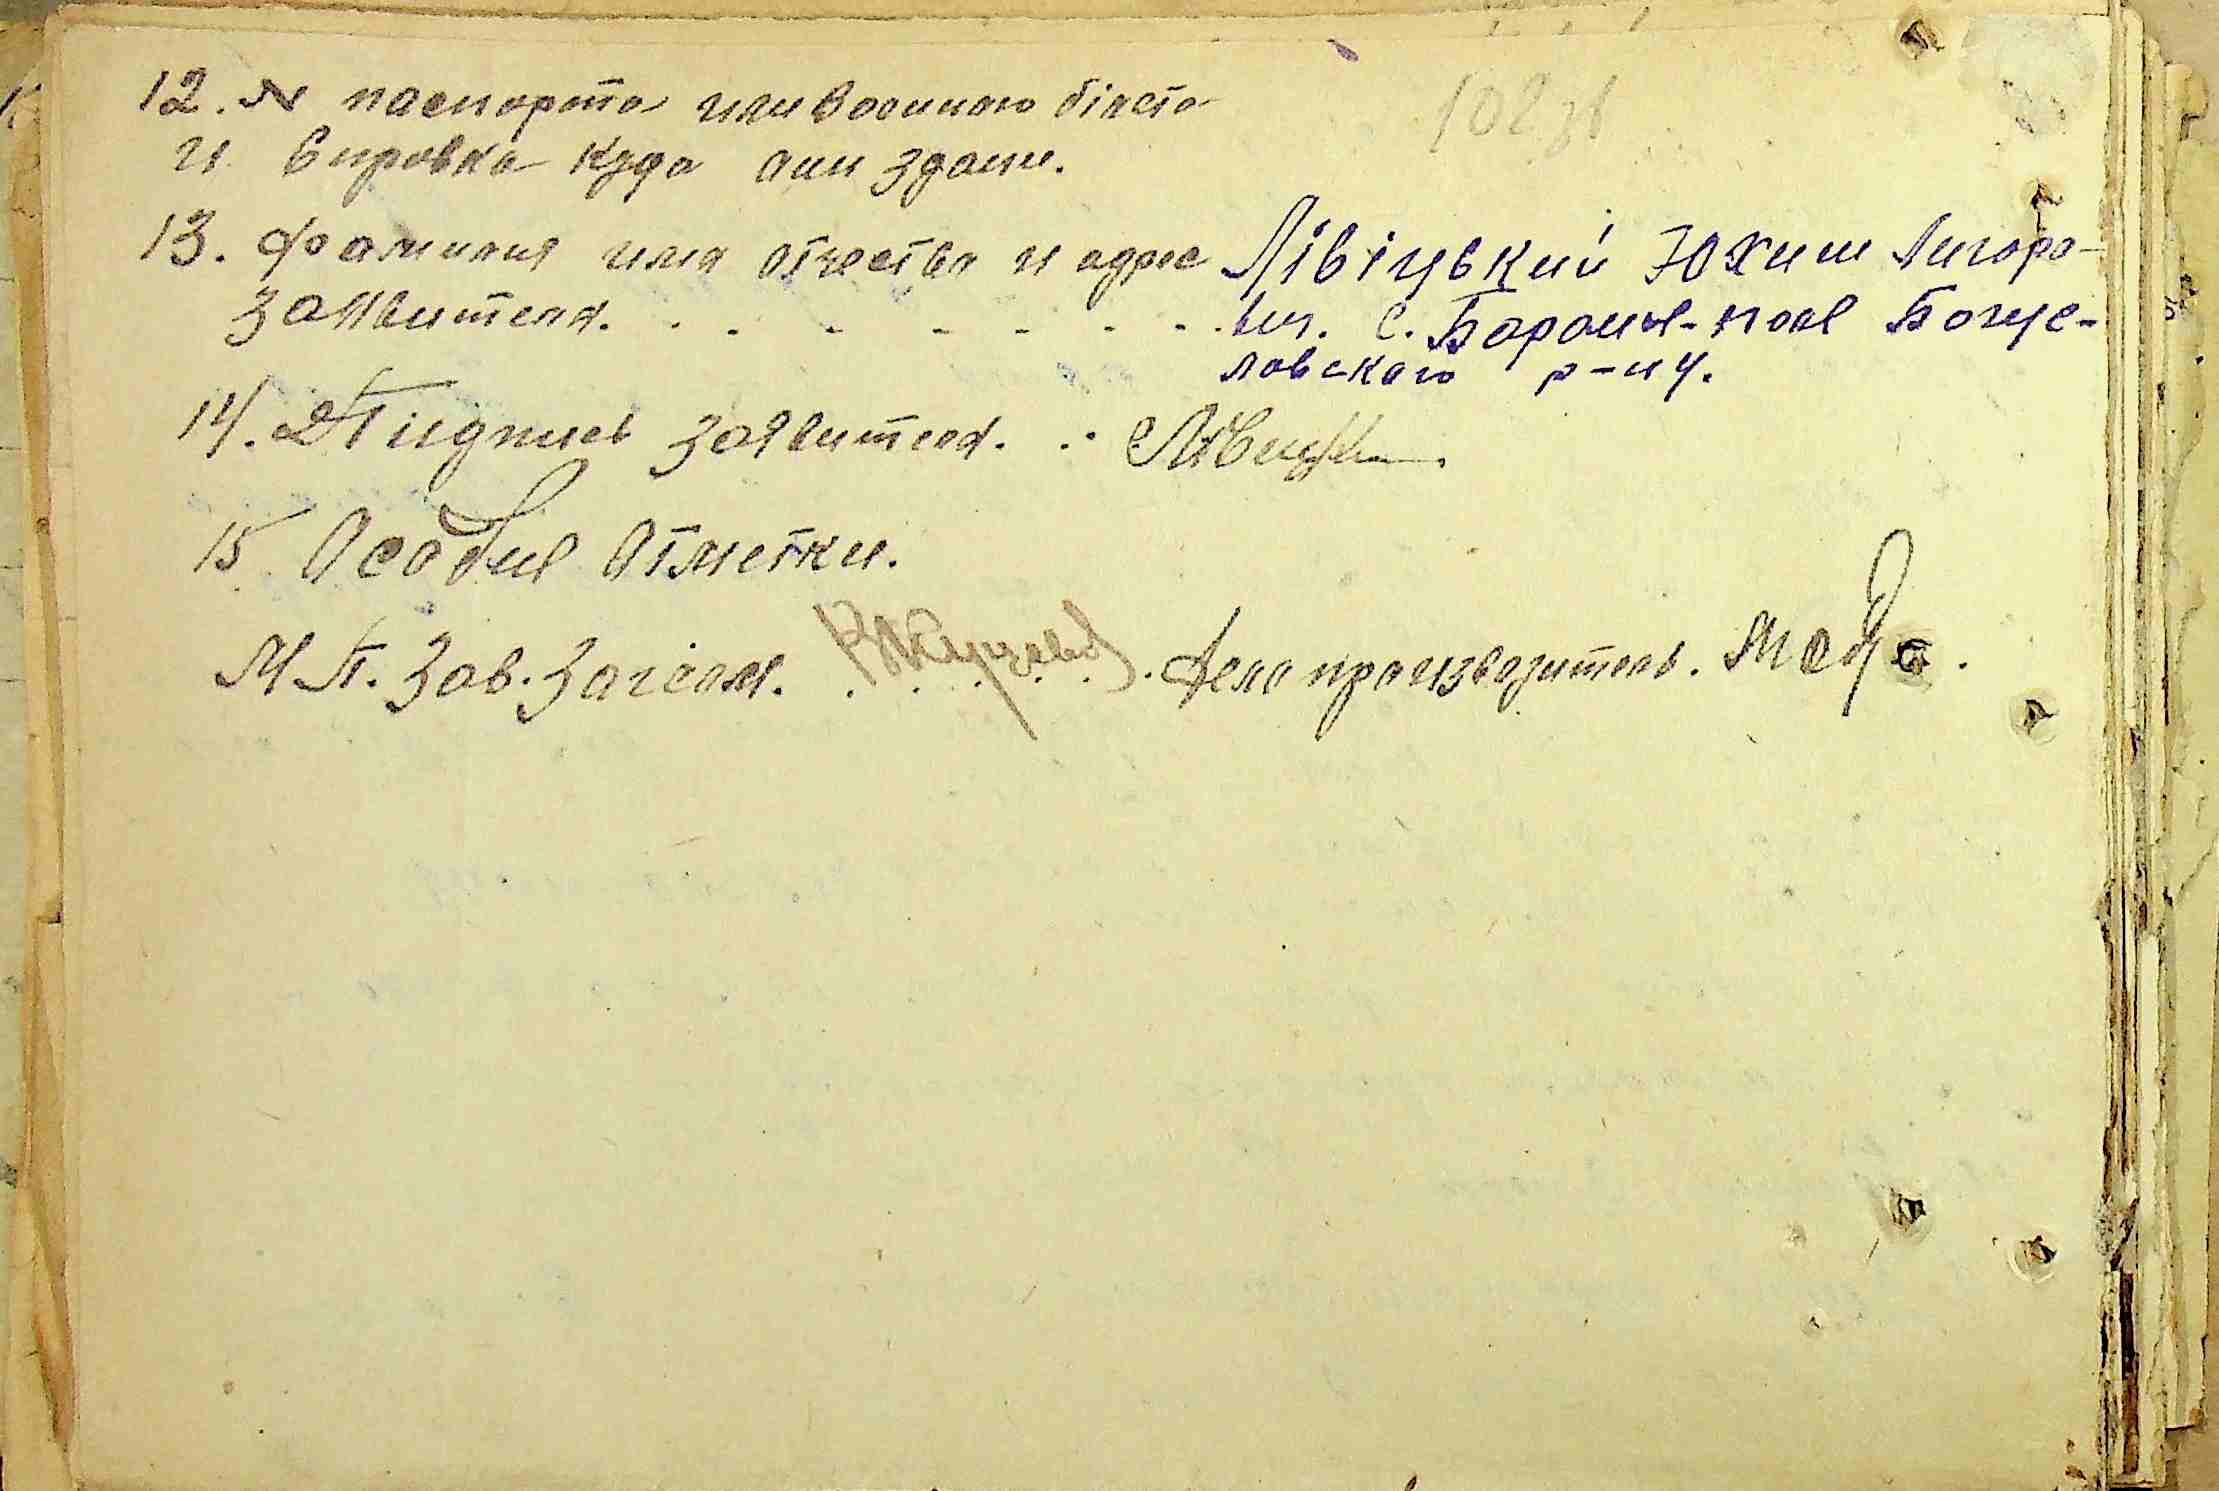 102 зв
12. № паспорта или военного білета
и справка куда они здани.
13. Фамилия имя отчество и адрес Лівіцький Юхим Лигоро-
заявителя. . . . . . . . вич. с. Бараньє-поле Богус-
лавского р-ну.
14. Пидпись заявителя. . .
15 Особие отметки.
М.П. Зав. Загсом. . . . . . Делопроизводитель.